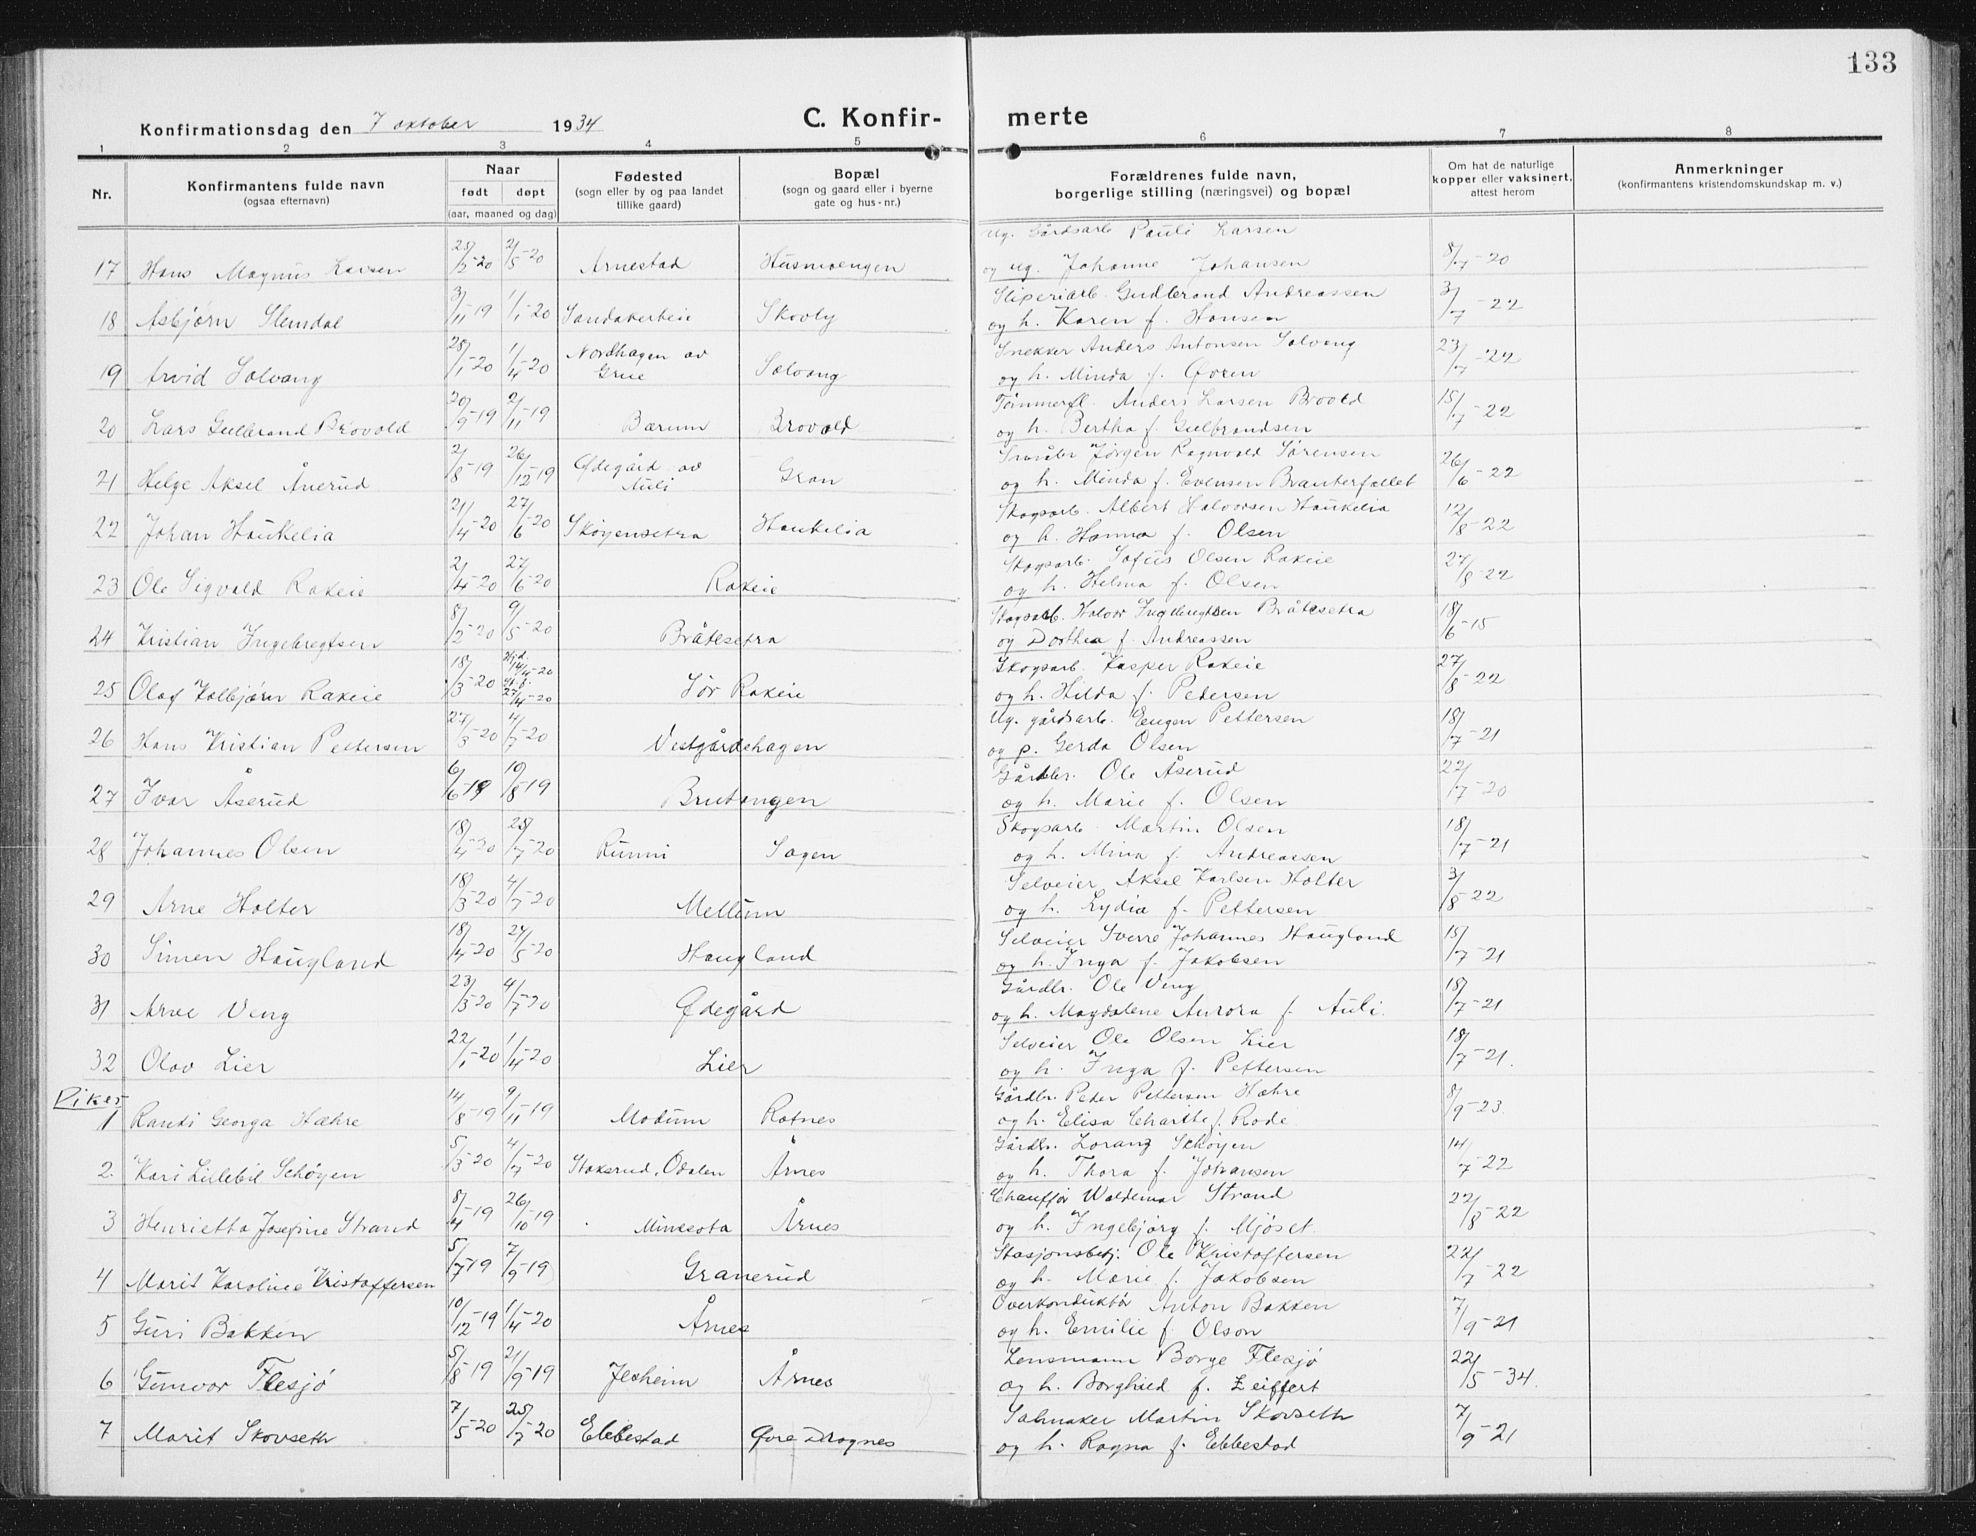 133
Konfirmationsdag den 7 oktober 1934 C. Konfir- merte
1 2 3 4 5 6 7 8
Nr. Konfirmantens fulde navn (ogsaa efternavn) Naar født døpt (aar, maaned og dag) Fødested (sogn eller by og paa landet tillike gaard) Bopæl (sogn og gaard eller i byerne gate og hus-nr.) Forældrenes fulde navn, borgerlige stilling (næringsvei) og bopæl Om hat de naturlige kopper eller vaksinert, attest herom Anmerkninger (konfirmantens kristendomskundskap m. v.)
Ug. Gårdsarb Pauli Larsen
17 Hans Magnus Larsen 25/2-20 2/5-20 Arnestad Husmoengen og ug. Johanne Johansen 8/7-20
Sliperiarb. Gudbrand Andreassen
18 Asbjørn Slemdal 3/11-19 1/1-20 Sandakereie Skovly og h. Karen f. Hansen 3/7-22
Snekker Anders Antonsen Solvang
19 Arvid Solvang 28/1-20 1/4-20 Nordhagen av Grue Solvang og h. Minda f. Øoren 23/7-22
Tømmerfl. Anders Larsen Brovold
20 Lars Gulbrand Brovold 20/9-19 2/11-19 Bærum Brovold og h. Bertha f. Gulbrandsen 15/7-22
Småbr Jørgen Ragnvald Sørensen
21 Helge Aksel Ånerud 2/8-19 26/12-19 Ødegård av Auli Gran og h. Minda f. Evensen Branterfallet 26/6-22
Skogsarb. Albert Halvorsen Haukelia
22 Johan Haukelia 21/4-20 27/6-20 Skøyensetra Haukelia og h. Hanna f. Olsen 12/8-22
Skogsarb. Sofus Olsen Rakeie
23 Ole Sigvald Rakeie 2/4-20 27/6-20 Rakeie og h. Helma f. Olsen 27/8-22
Skogsarb. Halvor Ingebregtsen Bråtesetra
24 Kristian Ingebregtsen 8/2-20 9/5-20 Bråtesetra og Dorthea f. Andreassen 18/6-15
Skogsarb. Kasper Rakeie
25 Olaf Kolbjørn Rakeie 18/3-20 Hjd. 14/4-20 27/4-20 Sör Rakeie og h. Hilda f. Pedersen 27/8-22
Ug. gårdsarb. Eugen Pettersen
26 Hans Kristian Pettersen 27/3-20 4/7-20 Vestgårdehagen og p. Gerda Olsen 18/7-21
Gårdbr. Ole Åserud
27 Ivar Åserud 6/6-19 10/8-19 Brutangen og h. Marie f. Olsen 22/7-20
Skogsarb. Martin Olsen
28 Johannes Olsen 18/4-20 25/7-20 Runni Sagen og h. Mina f. Andreassen 18/7-21
Selveier Aksel Karlsen Holter
29 Arne Holter 18/3-20 4/7-20 Mellum og h. Lydia f. Pettersen 3/8-22
Selveier Sverre Johannes Haugland
30 Simen Haugland 18/4-20 24/5-20 Haugland og h. Inga f. Jakobsen 15/7-21
Gårdbr. Ole Veng
31 Arne Veng 23/3-20 4/7-20 Ødegård og h. Magdalene Aurora f. Auli. 18/7-21
Selveier Ole Olsen Lier
32 Olav Lier 22/1-20 1/4-20 Lier og h. Inga f. Pettersen 18/7-21.
Piker
Gårdbr. Peder Pettersen Hæhre
1 Randi Georga Hæhre 14/8-19 9/11-19 Modum Ratnes og h. Elisa Charthe f. Rode 8/9-23
Gårdbr. Lorang Schøyen
2 Kari Lillebil Schøyen 5/3-20 4/7-20 Stokerud, Odalen Årnes og h. Thora f. Johansen 14/7-22
Chauffør Waldemar Strand
3 Henrietta Josefine Strand 8/4-19 26/10-19 Minesota Årnes og h. Ingebjørg f. Mjøset 22/8-22
Stasjonsbetj. Ole Kristoffersen
4 Marit Karoline Kristoffersen 5/7-19 7/9-19 Granerud og h. Marie f. Jakobsen 22/7-22
Overkonduktør Anton Bakken
5 Guri Bakken 10/12-19 1/4-20 Årnes og h. Emilie f. Olson 7/9-21
Lensmann Borge Flesjø
6 Gunvor Flesjø 5/8-19 21/9-19 Jesheim Årnes og h. Borghild f. Zeiffert 22/5-34.
Salmaker Martin Skovseth
7 Marit Skovseth 7/5-20 25/7-20 Ebbestad Øvre Dragnes og h. Ragna f. Ebbestad 7/9-21